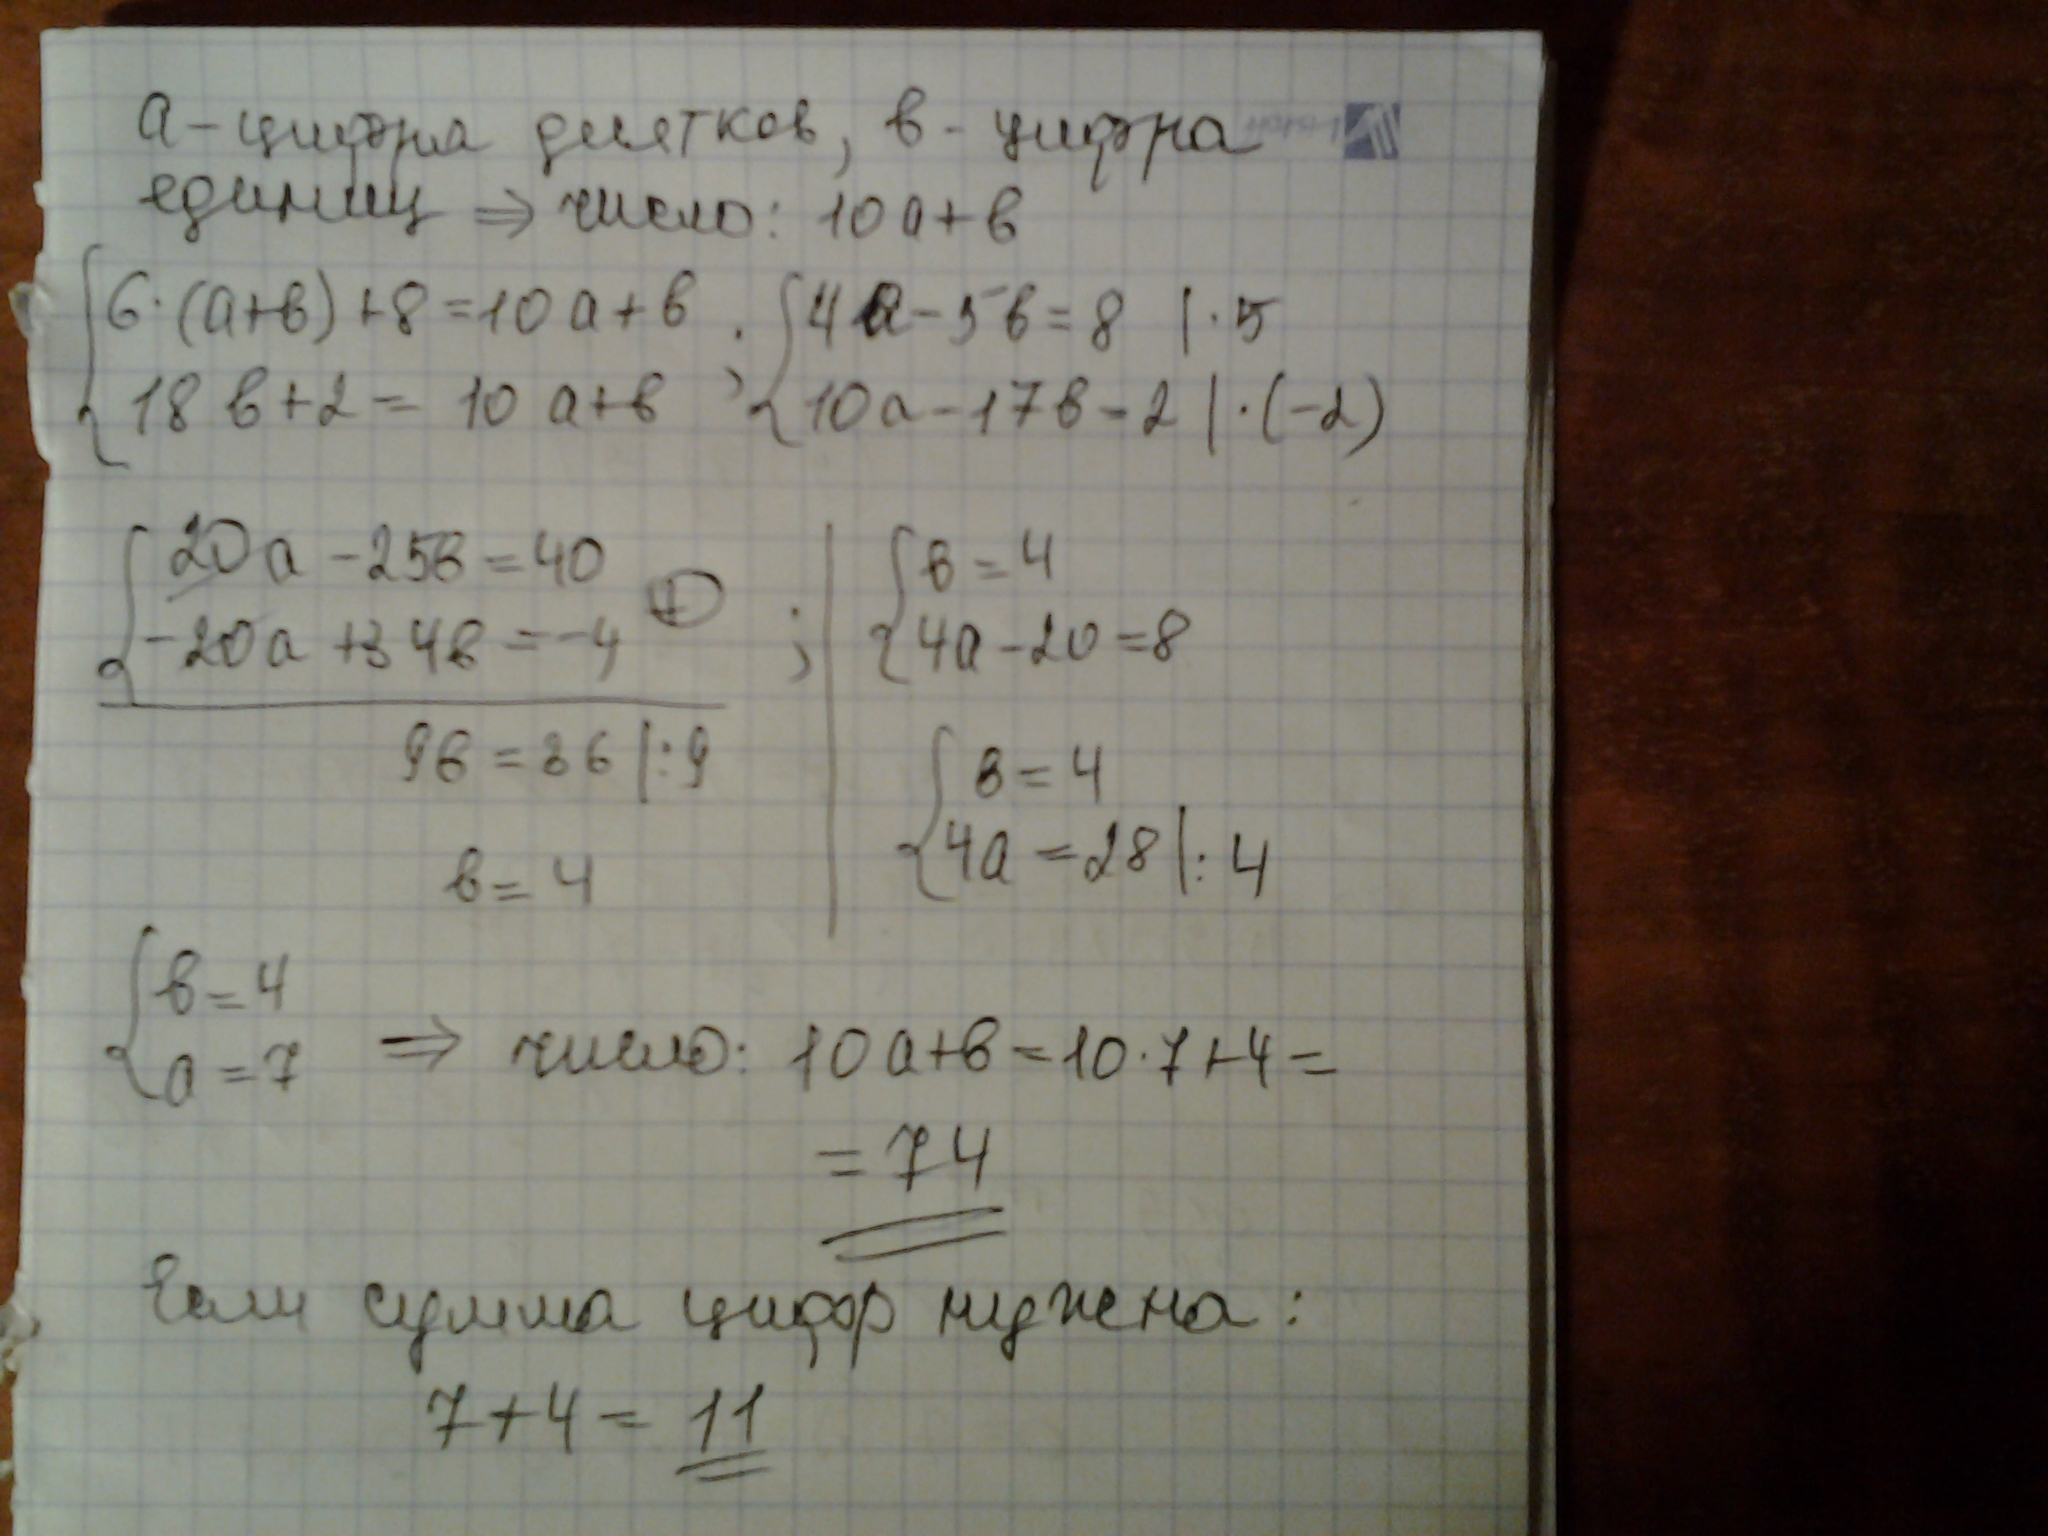 а-цифра десятков, в-цифра
единиц ⇒ число: 10а+в
{6·(а+в)+8=10а+в ; {4а-5в=8 |·5
18в+2=10а+в {10а-17в=2 |·(-2)
{20а-25в=40
-20а+34в=-4 ⊕ ;
9в=36|:9
в=4
{в=4
4а-20=8
{в=4
4а=28|:4
{в=4
а=7 ⇒ число: 10а+в=10·7+4=
=74
Если сумма цифр нужна:
7+4=11